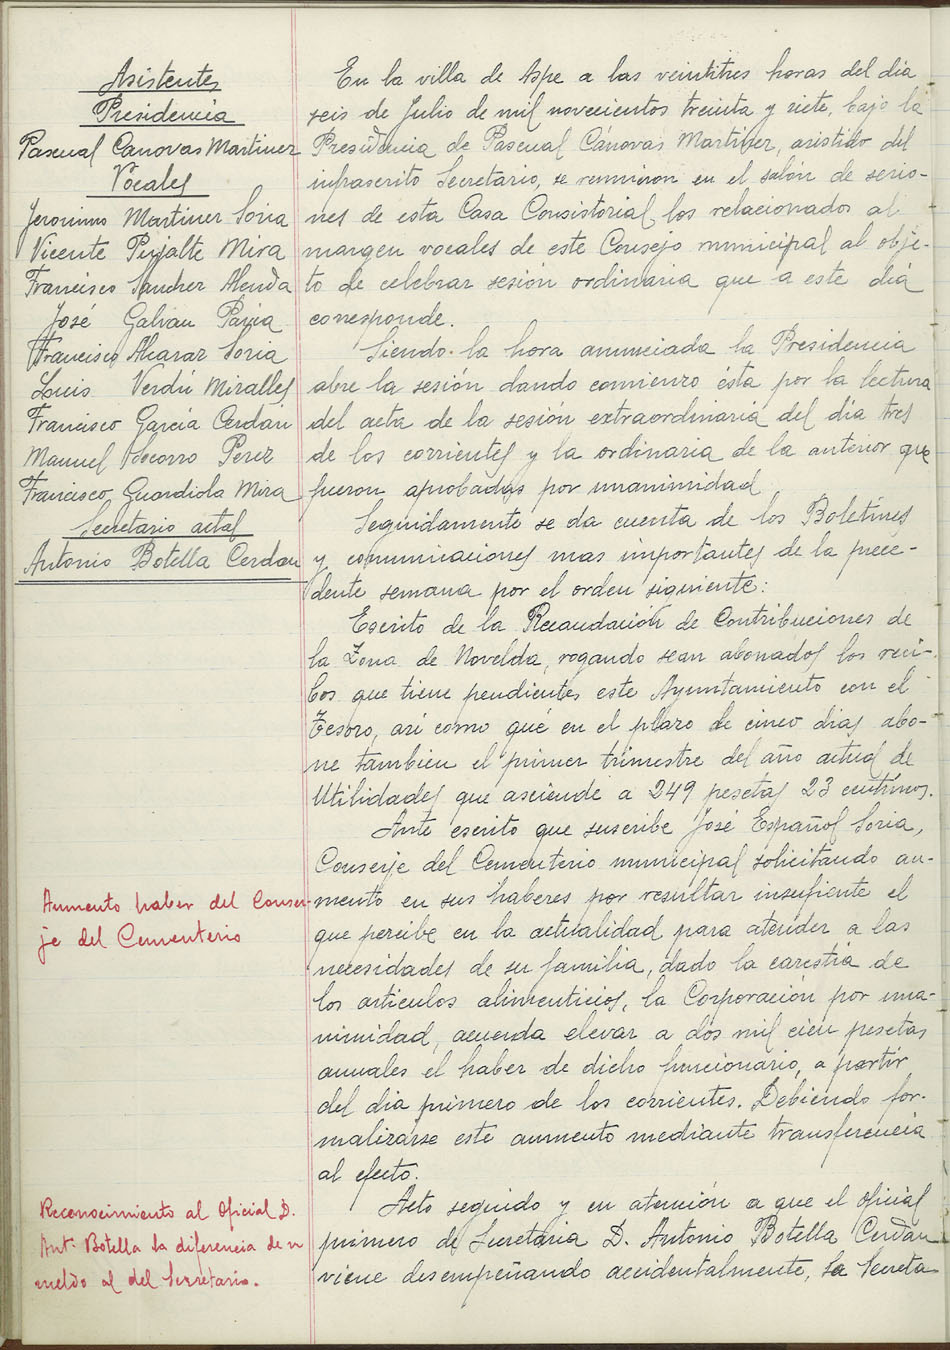 Asistentes
Presidencia
Pascual Canovas Martinez
Vocales
Jeronimo Martinez Soria
Vicente Pujalte Mira
Francisco Sanchez Alenda
José Galvan Pavia
Francisco Alcaraz Soria
Luis Verdú Miralles
Francisco García Cerdán
Manuel Socorro Perez
Francisco Guardiola Mira
Secretario actal
Antonio Botella Cerdan
En la villa de Aspe a las veintitres horas del dia
seis de Julio de mil novecientos treinta y siete, bajo la
Presidencia de Pascual Cánovas Martinez, asistido del
infrascrito Secretario, se reunieron en el salón de sesio-
nes de esta Casa Consistorial, los relacionados al
margen vocales de este Consejo municipal al obje-
to de celebrar sesión ordinaria que a este día
corresponde.
Siendo la hora anunciada la Presidencia
abre la sesión dando comienzo ésta por la lectura
del acta de la sesión extraordinaria del dia tres
de los corrientes y la ordinaria de la anterior que
fueron aprobadas por unanimidad
Seguidamente se da cuenta de los Boletines
y comunicaciones mas importantes de la prece-
dente semana por el orden siguiente:
Escrito de la Recaudación de Contribuciones de
la Zona de Novelda, rogando sean abonados los reci-
bos que tiene pendientes este Ayuntamiento con el
Tesoro, así como qué en el plazo de cinco dias abo-
ne tambien el primer trimestre del año actual de
Utilidades que asciende a 249 pesetas 23 centimos.
Ante escrito que suscribe José Español Soria,
Conserje del Cementerio municipal solicitando au-
mento en sus haberes por resultar insufiente el
que percibe en la actualidad para atender a las
necesidades de su familia, dado la carestia de
los articulos alimenticios, la Corporación por una-
nimidad, acuerda elevar a dos mil cien pesetas
anuales el haber de dicho funcionario, a partir
del dia primero de los corrientes. Debiendo for-
malizarse este aumento mediante transferencia
al efecto.
Acto seguido y en atención a que el oficial
primero de Secretaria D. Antonio Botella Cerdán
viene desempeñando accidentalmente, la Secreta
Aumento haber del Conser-
je del Cementerio
Reconocimiento al Oficial D.
Ant. Botella la diferencia de su
sueldo al del Secretario.